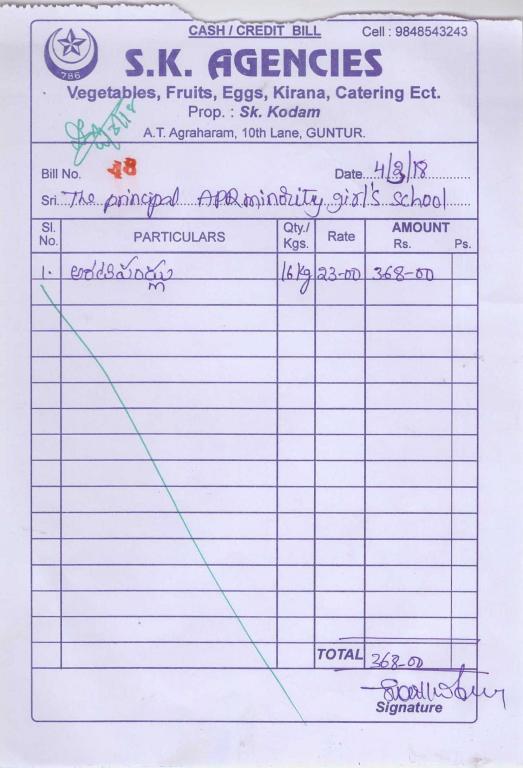 CASH / CREDIT BILL
Cell : 9848543243
786
S.K. AGENCIES
Vegetables, Fruits, Eggs, Kirana, Catering Ect.
Prop. : Sk. Kodam
A.T. Agraharam, 10th Lane, GUNTUR.
Bill No. 48 Date 4/8/18
Sri. The principal APR minority girl's school
Sl. No. PARTICULARS Qty./ Kgs. Rate AMOUNT Rs. Ps.
1. అరటిపండ్లు 16 kg 23-00 368-00
TOTAL 368-00
Signature